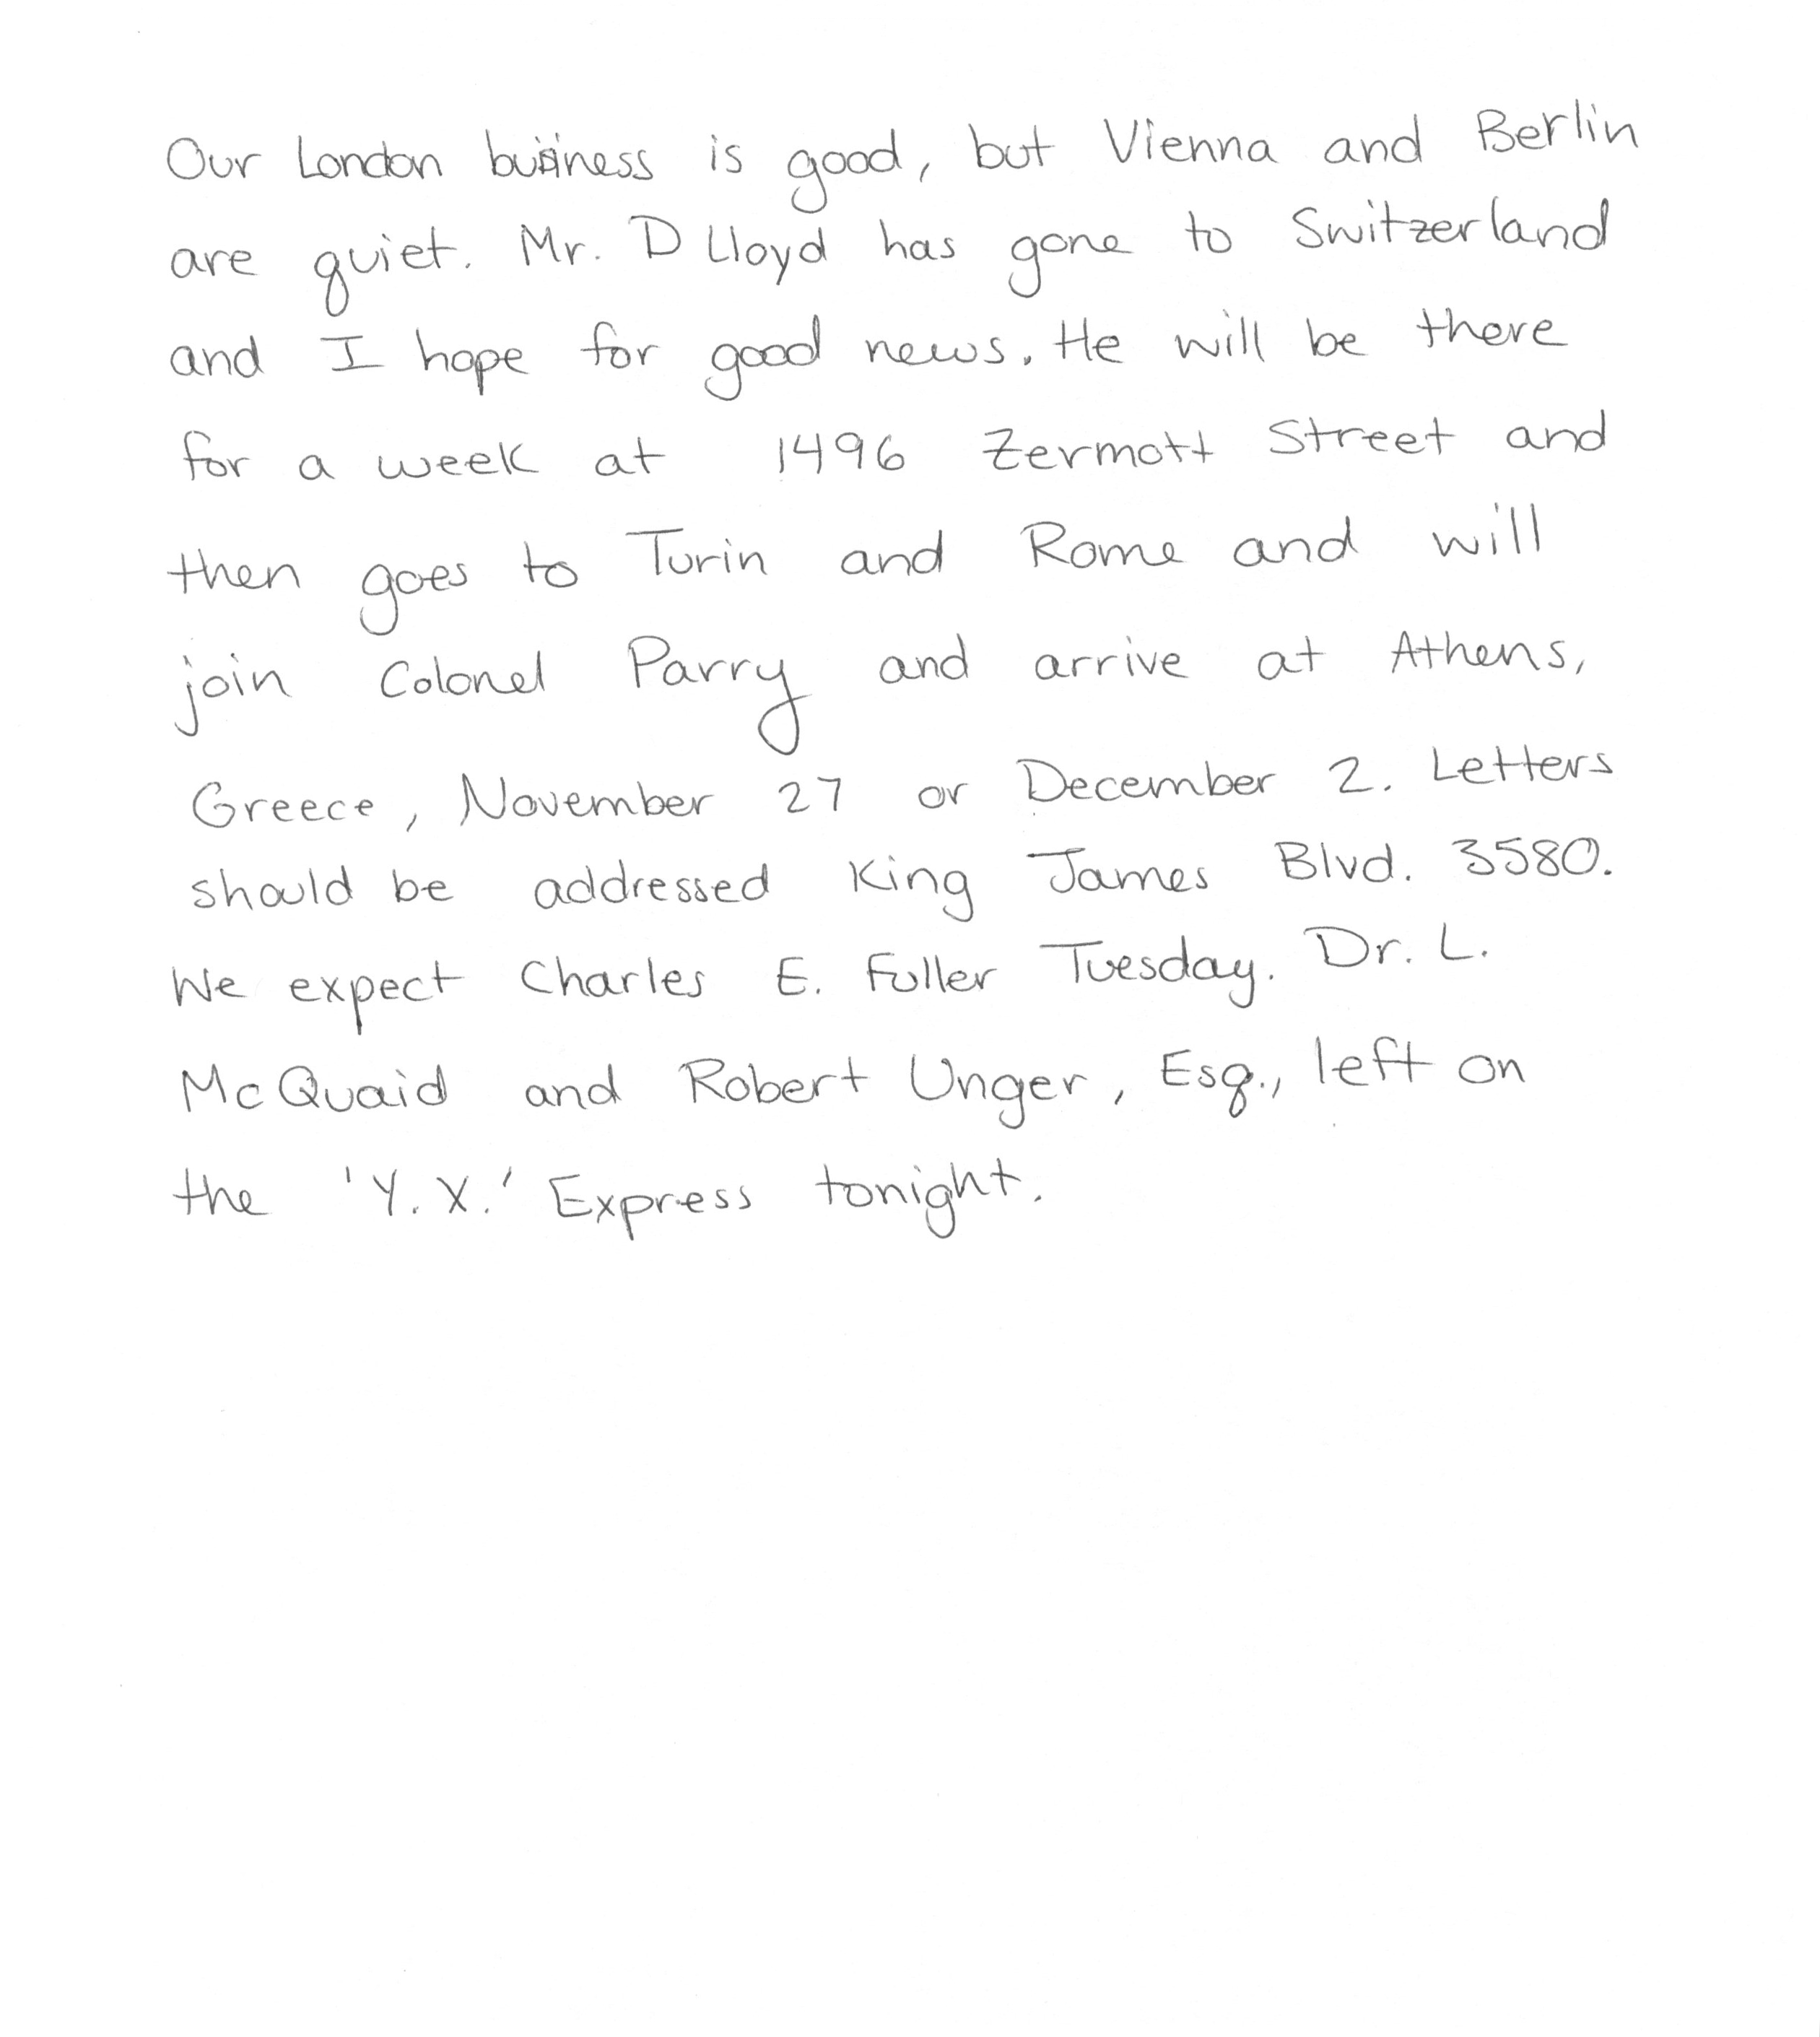 Our London business is good, but Vienna and Berlin
are quiet. Mr. D Lloyd has gone to Switzerland
and I hope for good news. He will be there
for a week at 1496 Zermott Street and
then goes to Turin and Rome and will
join Colonel Parry and arrive at Athens,
Greece, November 27 or December 2. Letters
should be addressed King James Blvd. 3580.
We expect Charles E. Fuller Tuesday. Dr. L.
McQuaid and Robert Unger, Esq., left on
the 'Y.X.' Express tonight.